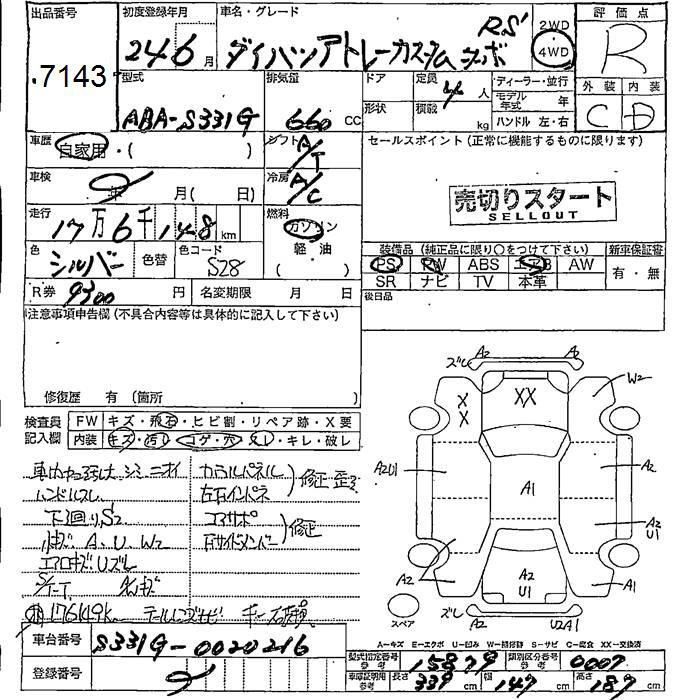 出品番号
7143
初度登録年月
24 6 月
車名・グレード
ダイハツアトレーカスタムターボ RS
2WD
4WD
評価点
R
外装 内装
C D
型式
ABA-S331G
排気量
660 CC
ドア
形状
定員
4 人
積載
kg
ディーラー・並行
モデル年式 年
ハンドル 左・右
車歴
自家用・( )
シフト
A/T
セールスポイント (正常に機能するものに限ります)
売切りスタート
SELLOUT
車検
年 月( 日)
冷房
A/C
走行
17万6千148km
燃料
ガソリン
軽・油
( )
色
シルバー
色替
色コード
S28
装備品 (純正品に限り〇をつけて下さい)
新車保証書
PS PW ABS エアB AW
SR ナビ TV 本革
有・無
R券
9300 円
名変期限 月 日
後日品
注意事項申告欄 (不具合内容等は具体的に記入して下さい)
修復歴 有 (箇所 )
検査員記入欄
FW キズ・飛石・ヒビ割・リペア跡・X要
内装 キズ・汚れ・コゲ・穴・スレ・キレ・破レ
シミ ニオイ
ハンドルスレ
下廻りS2
小キズ A、U W2
エアロキズUズレ
カウルパネル
左右インパネ
修正 歪
コアサポ
右サイドメンバー
修正
176149k
ズレ A2 A2
W2
XX
X
X
A2U1
A1
A2
A2
U1
A2
A2
U1
A1
スペア
ズレ
U2A1
A-キズ E-エクボ U-凹み W-補修跡 S-サビ C-腐食 XX-交換済
車台番号
S331G-0020216
登録番号
型式指定番号 参考
15879
類別区分番号 参考
0007
車庫証明用 参考
長さ 339 cm
幅 147 cm
高さ 187 cm